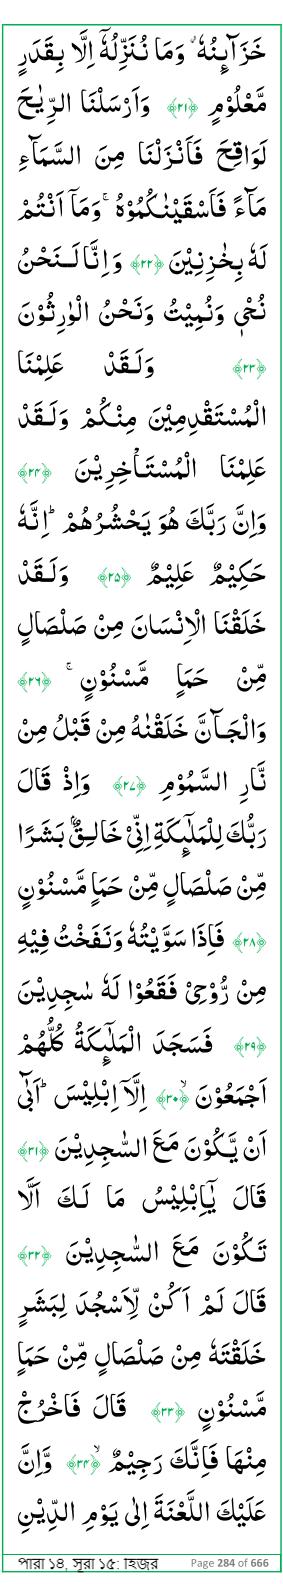 خَزَآىِٕنُهٗ ۫ وَمَا نُنَزِّلُهٗۤ اِلَّا بِقَدَرٍ
مَّعْلُوْمٍ ﴿۲۱﴾ وَاَرْسَلْنَا الرِّيٰحَ
لَوَاقِحَ فَاَنْزَلْنَا مِنَ السَّمَآءِ
مَآءً فَاَسْقَيْنٰكُمُوْهُ ۚ وَمَاۤ اَنْتُمْ
لَهٗ بِخٰزِنِيْنَ ﴿۲۲﴾ وَاِنَّا لَـنَحْنُ
نُحْيٖ وَنُمِيْتُ وَنَحْنُ الْوٰرِثُوْنَ
﴿۲۳﴾ وَلَـقَدْ عَلِمْنَا
الْمُسْتَقْدِمِيْنَ مِنْكُمْ وَلَـقَدْ
عَلِمْنَا الْمُسْتَـاْخِرِيْنَ ﴿۲۴﴾
وَاِنَّ رَبَّكَ هُوَ يَحْشُرُهُمْ ؕ اِنَّهٗ
حَكِيْمٌ عَلِيْمٌ ﴿۲۵﴾ وَلَـقَدْ
خَلَقْنَا الْاِنْسَانَ مِنْ صَلْصَالٍ
مِّنْ حَمَاٍ مَّسْنُوْنٍ ۚ ﴿۲۶﴾
وَالْجَـآنَّ خَلَقْنٰهُ مِنْ قَبْلُ مِنْ
نَّارِ السَّمُوْمِ ﴿۲۷﴾ وَاِذْ قَالَ
رَبُّكَ لِلْمَلٰۤىِٕكَةِ اِنِّىْ خَالِـقٌۢ بَشَرًا
مِّنْ صَلْصَالٍ مِّنْ حَمَاٍ مَّسْنُوْنٍ
﴿۲۸﴾ فَاِذَا سَوَّيْتُهٗ وَنَفَخْتُ فِيْهِ
مِنْ رُّوْحِىْ فَقَعُوْا لَهٗ سٰجِدِيْنَ
﴿۲۹﴾ فَسَجَدَ الْمَلٰۤىِٕكَةُ كُلُّهُمْ
اَجْمَعُوْنَ ۙ ﴿۳۰﴾ اِلَّاۤ اِبْلِيْسَ ؕ اَبٰٓى
اَنْ يَّكُوْنَ مَعَ السّٰجِدِيْنَ ﴿۳۱﴾
قَالَ يٰۤـاِبْلِيْسُ مَا لَـكَ اَلَّا
تَكُوْنَ مَعَ السّٰجِدِيْنَ ﴿۳۲﴾
قَالَ لَمْ اَكُنْ لِّاَسْجُدَ لِبَشَرٍ
خَلَقْتَهٗ مِنْ صَلْصَالٍ مِّنْ حَمَاٍ
مَّسْنُوْنٍ ﴿۳۳﴾ قَالَ فَاخْرُجْ
مِنْهَا فَاِنَّكَ رَجِيْمٌ ۙ ﴿۳۴﴾ وَّاِنَّ
عَلَيْكَ اللَّعْنَةَ اِلٰى يَوْمِ الدِّيْنِ
পারা ১৪, সূরা ১৫: হিজর Page 284 of 666